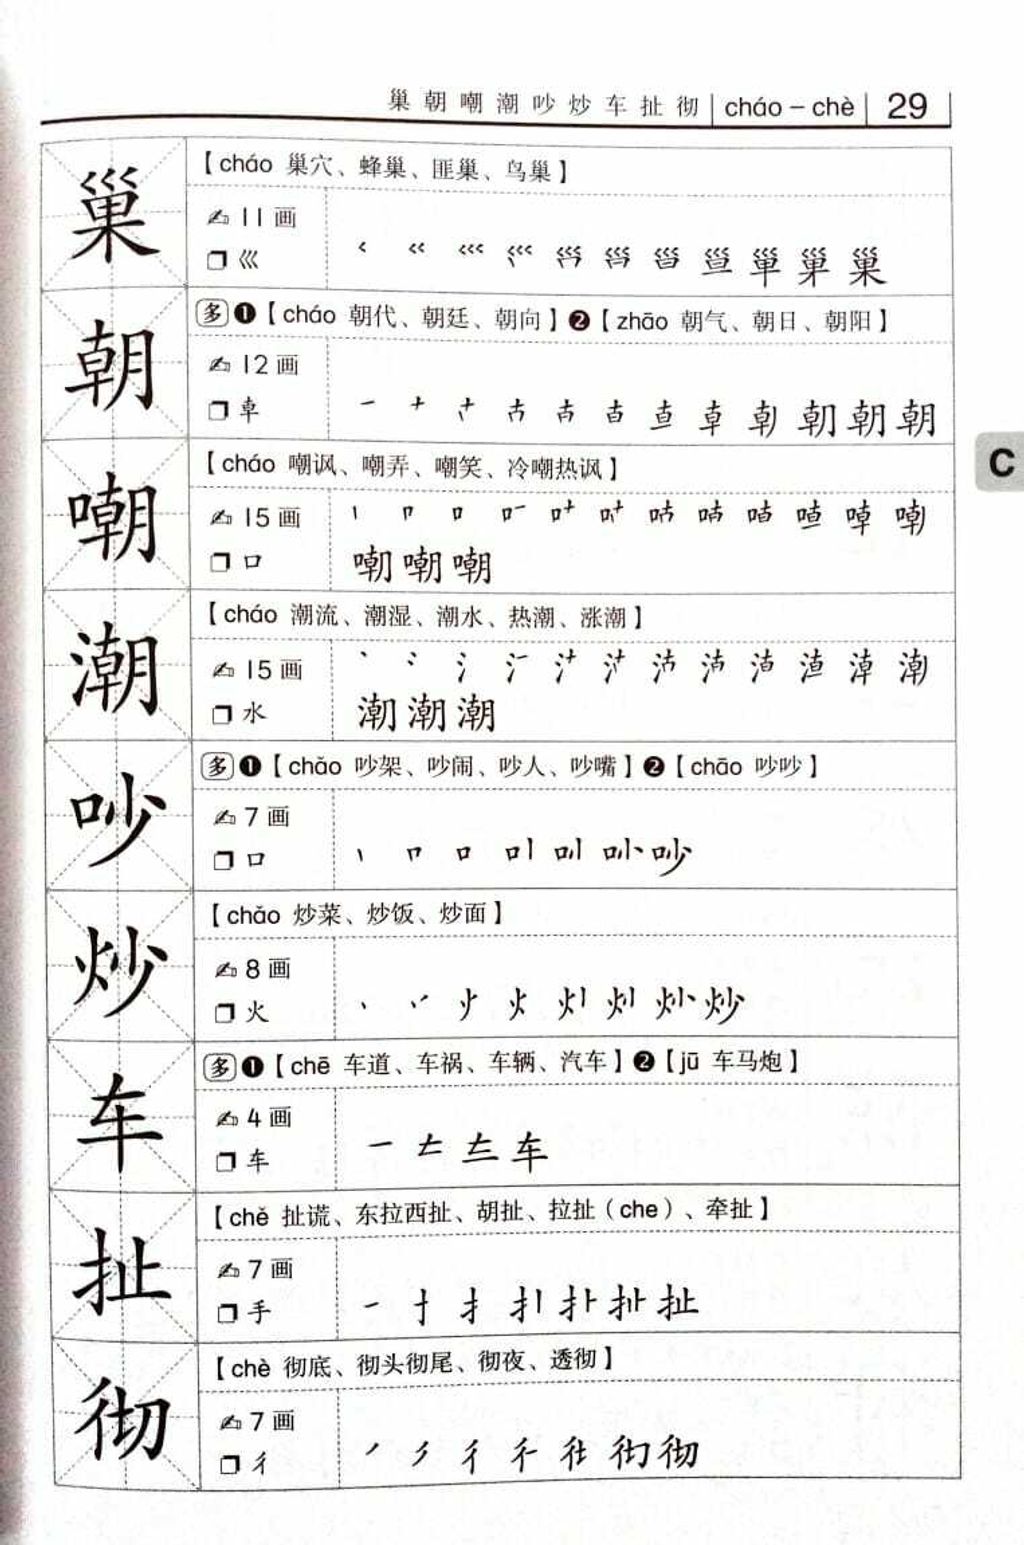 巢 朝 嘲 潮 吵 炒 车 扯 彻 | cháo – chè | 29
巢
【cháo 巢穴、蜂巢、匪巢、鸟巢】
11 画
巛
朝
多 ❶【cháo 朝代、朝廷、朝向】❷【zhāo 朝气、朝日、朝阳】
12 画
龺
嘲
【cháo 嘲讽、嘲弄、嘲笑、冷嘲热讽】
15 画
口
潮
【cháo 潮流、潮湿、潮水、热潮、涨潮】
15 画
水
吵
多 ❶【chǎo 吵架、吵闹、吵人、吵嘴】❷【chāo 吵吵】
7 画
口
炒
【chǎo 炒菜、炒饭、炒面】
8 画
火
车
多 ❶【chē 车道、车祸、车辆、汽车】❷【jū 车马炮】
4 画
车
扯
【chě 扯谎、东拉西扯、胡扯、拉扯（che）、牵扯】
7 画
手
彻
【chè 彻底、彻头彻尾、彻夜、透彻】
7 画
彳
C